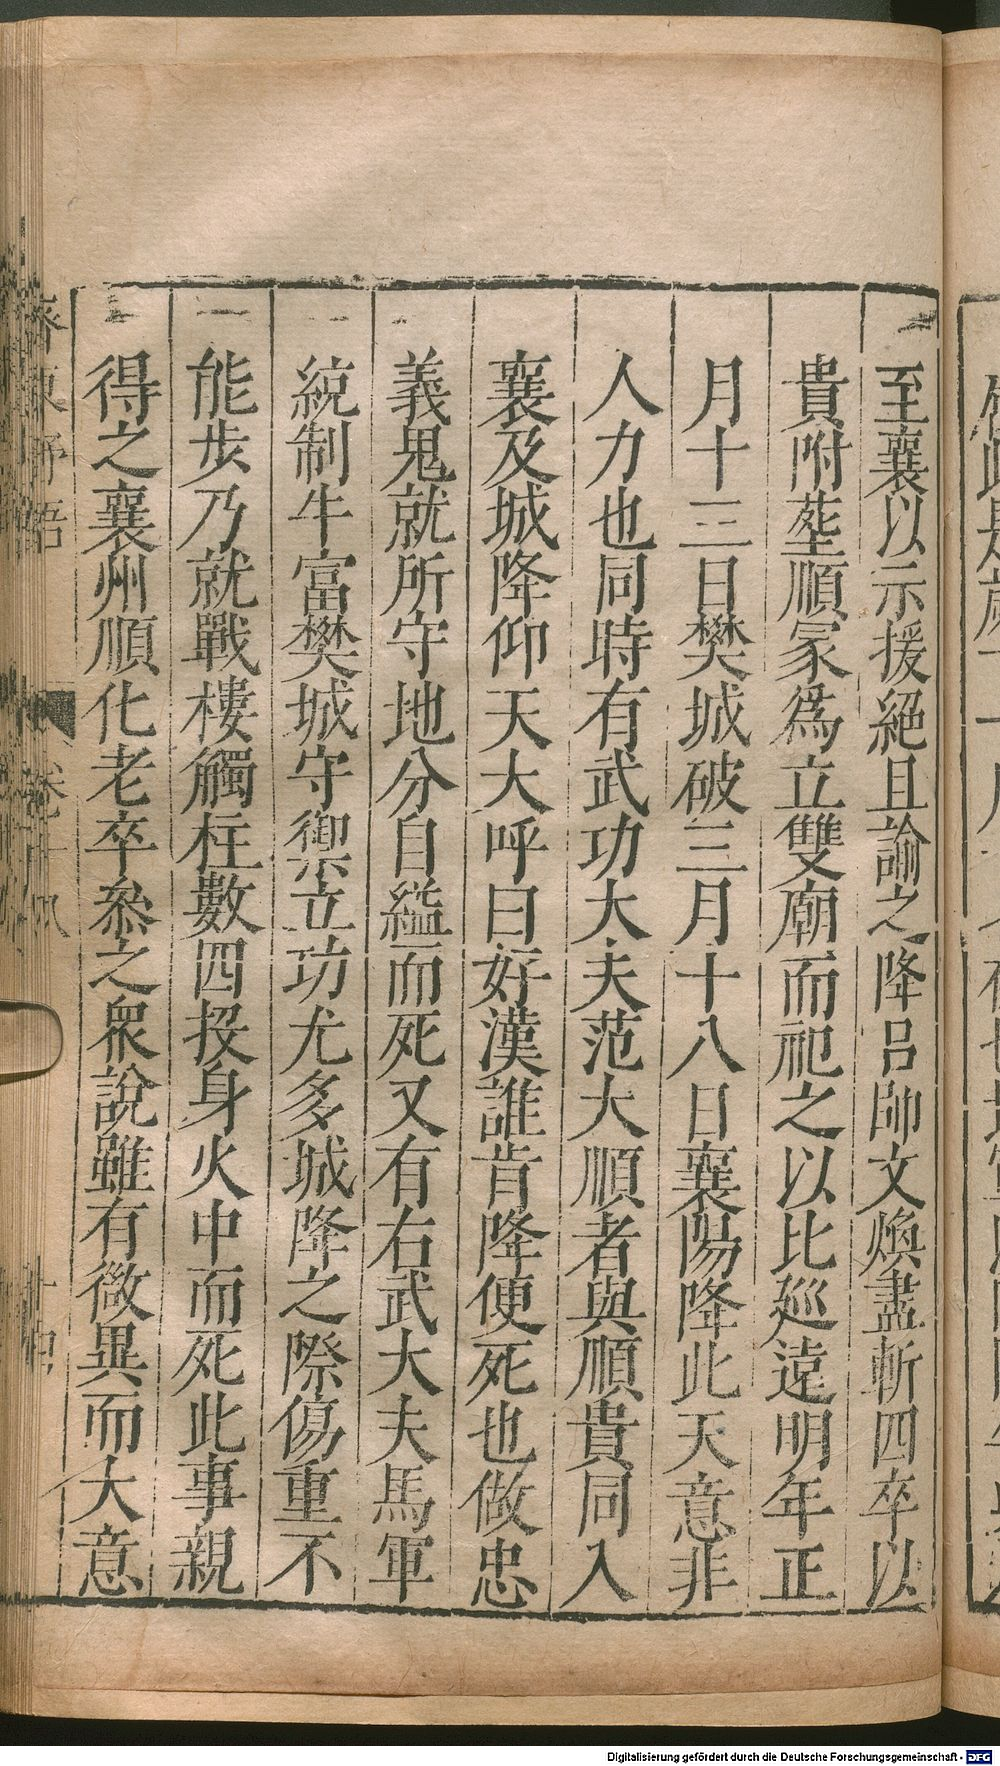 至襄以示援絕且諭之降呂帥文煥盡斬四卒以
貴附塟順冢爲立雙廟而祀之以比廵遠明年正
月十三日樊城破三月十八日襄陽降此天意非
人力也同時有武功大夫范大順者與順貴同入
襄及城降仰天大呼曰好漢誰肯降便死也做忠
義鬼就所守地分自縊而死又有右武大夫馬軍
統制牛富樊城守禦立功尤多城降之際傷重不
能步乃就戰樓觸柱數四投身火中而死此事親
得之襄州順化老卒叅之衆說雖有微異而大意
齊東野語
Digitalisierung gefördert durch die Deutsche Forschungsgemeinschaft - DFG